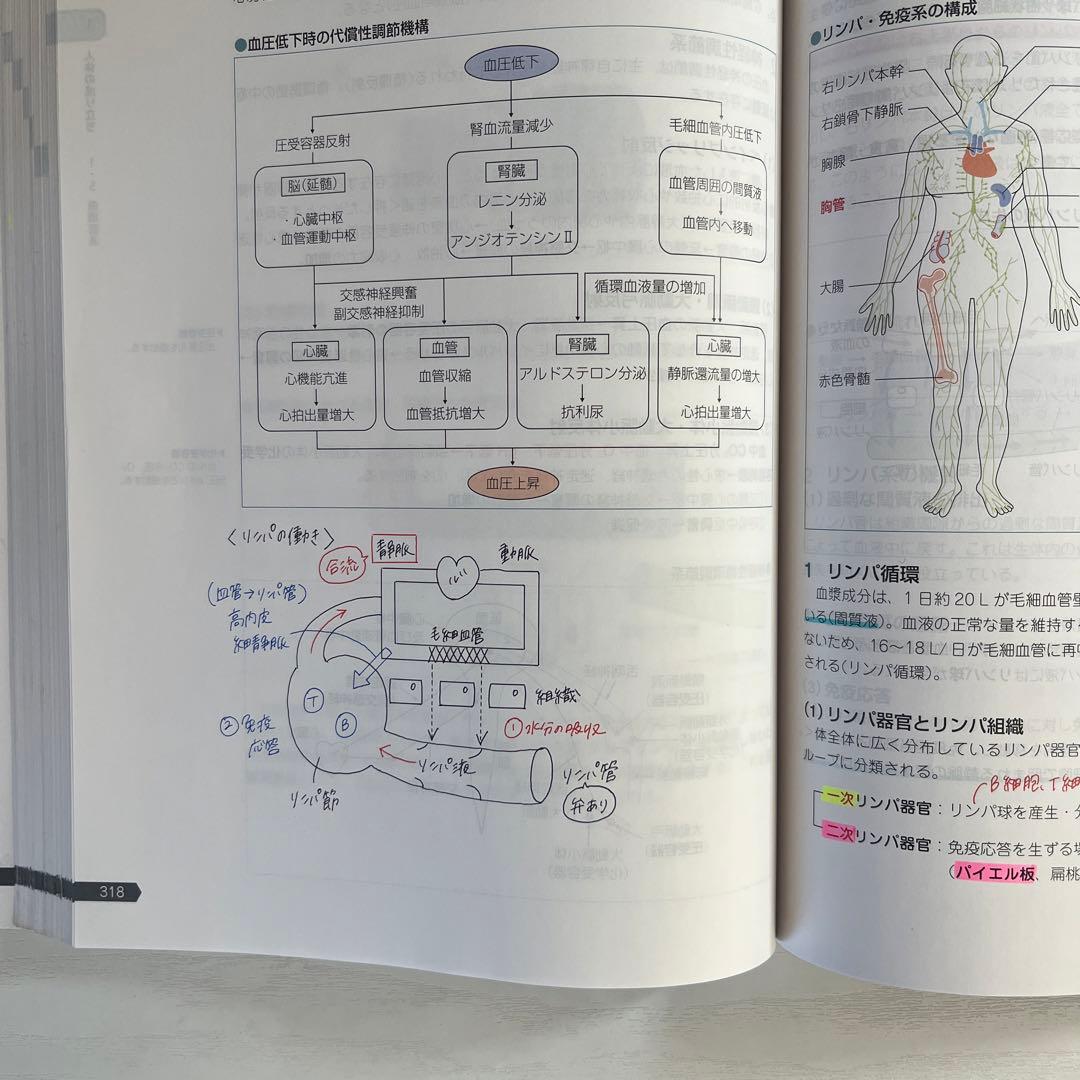 ●血圧低下時の代償性調節機構
血圧低下
圧受容器反射
腎血流量減少
毛細血管内圧低下
脳(延髄)
・心臓中枢
・血管運動中枢
腎臓
レニン分泌
アンジオテンシンⅡ
血管周囲の間質液
血管内へ移動
交感神経興奮
副交感神経抑制
循環血液量の増加
心臓
心機能亢進
心拍出量増大
血管
血管収縮
血管抵抗増大
腎臓
アルドステロン分泌
抗利尿
心臓
静脈還流量の増大
心拍出量増大
血圧上昇
〈リンパの働き〉
合流
静脈
動脈
(血管→リンパ管)
高内皮
細静脈
毛細血管
組織
T
B
②免疫
応答
①水分の吸収
リンパ液
リンパ節
リンパ管
弁あり
318
●リンパ・免疫系の構成
右リンパ本幹
右鎖骨下静脈
胸腺
胸管
大腸
赤色骨髄
1 リンパ循環
血漿成分は、1日約20Lが毛細血管壁
いる(間質液)。血液の正常な量を維持する
ないため、16〜18L/日が毛細血管に再吸
される(リンパ循環)。
(1)リンパ器官とリンパ組織
体全体に広く分布しているリンパ器官
ループに分類される。
B細胞、T細
一次リンパ器官：リンパ球を産生・分
二次リンパ器官：免疫応答を生ずる場
(パイエル板、扁桃